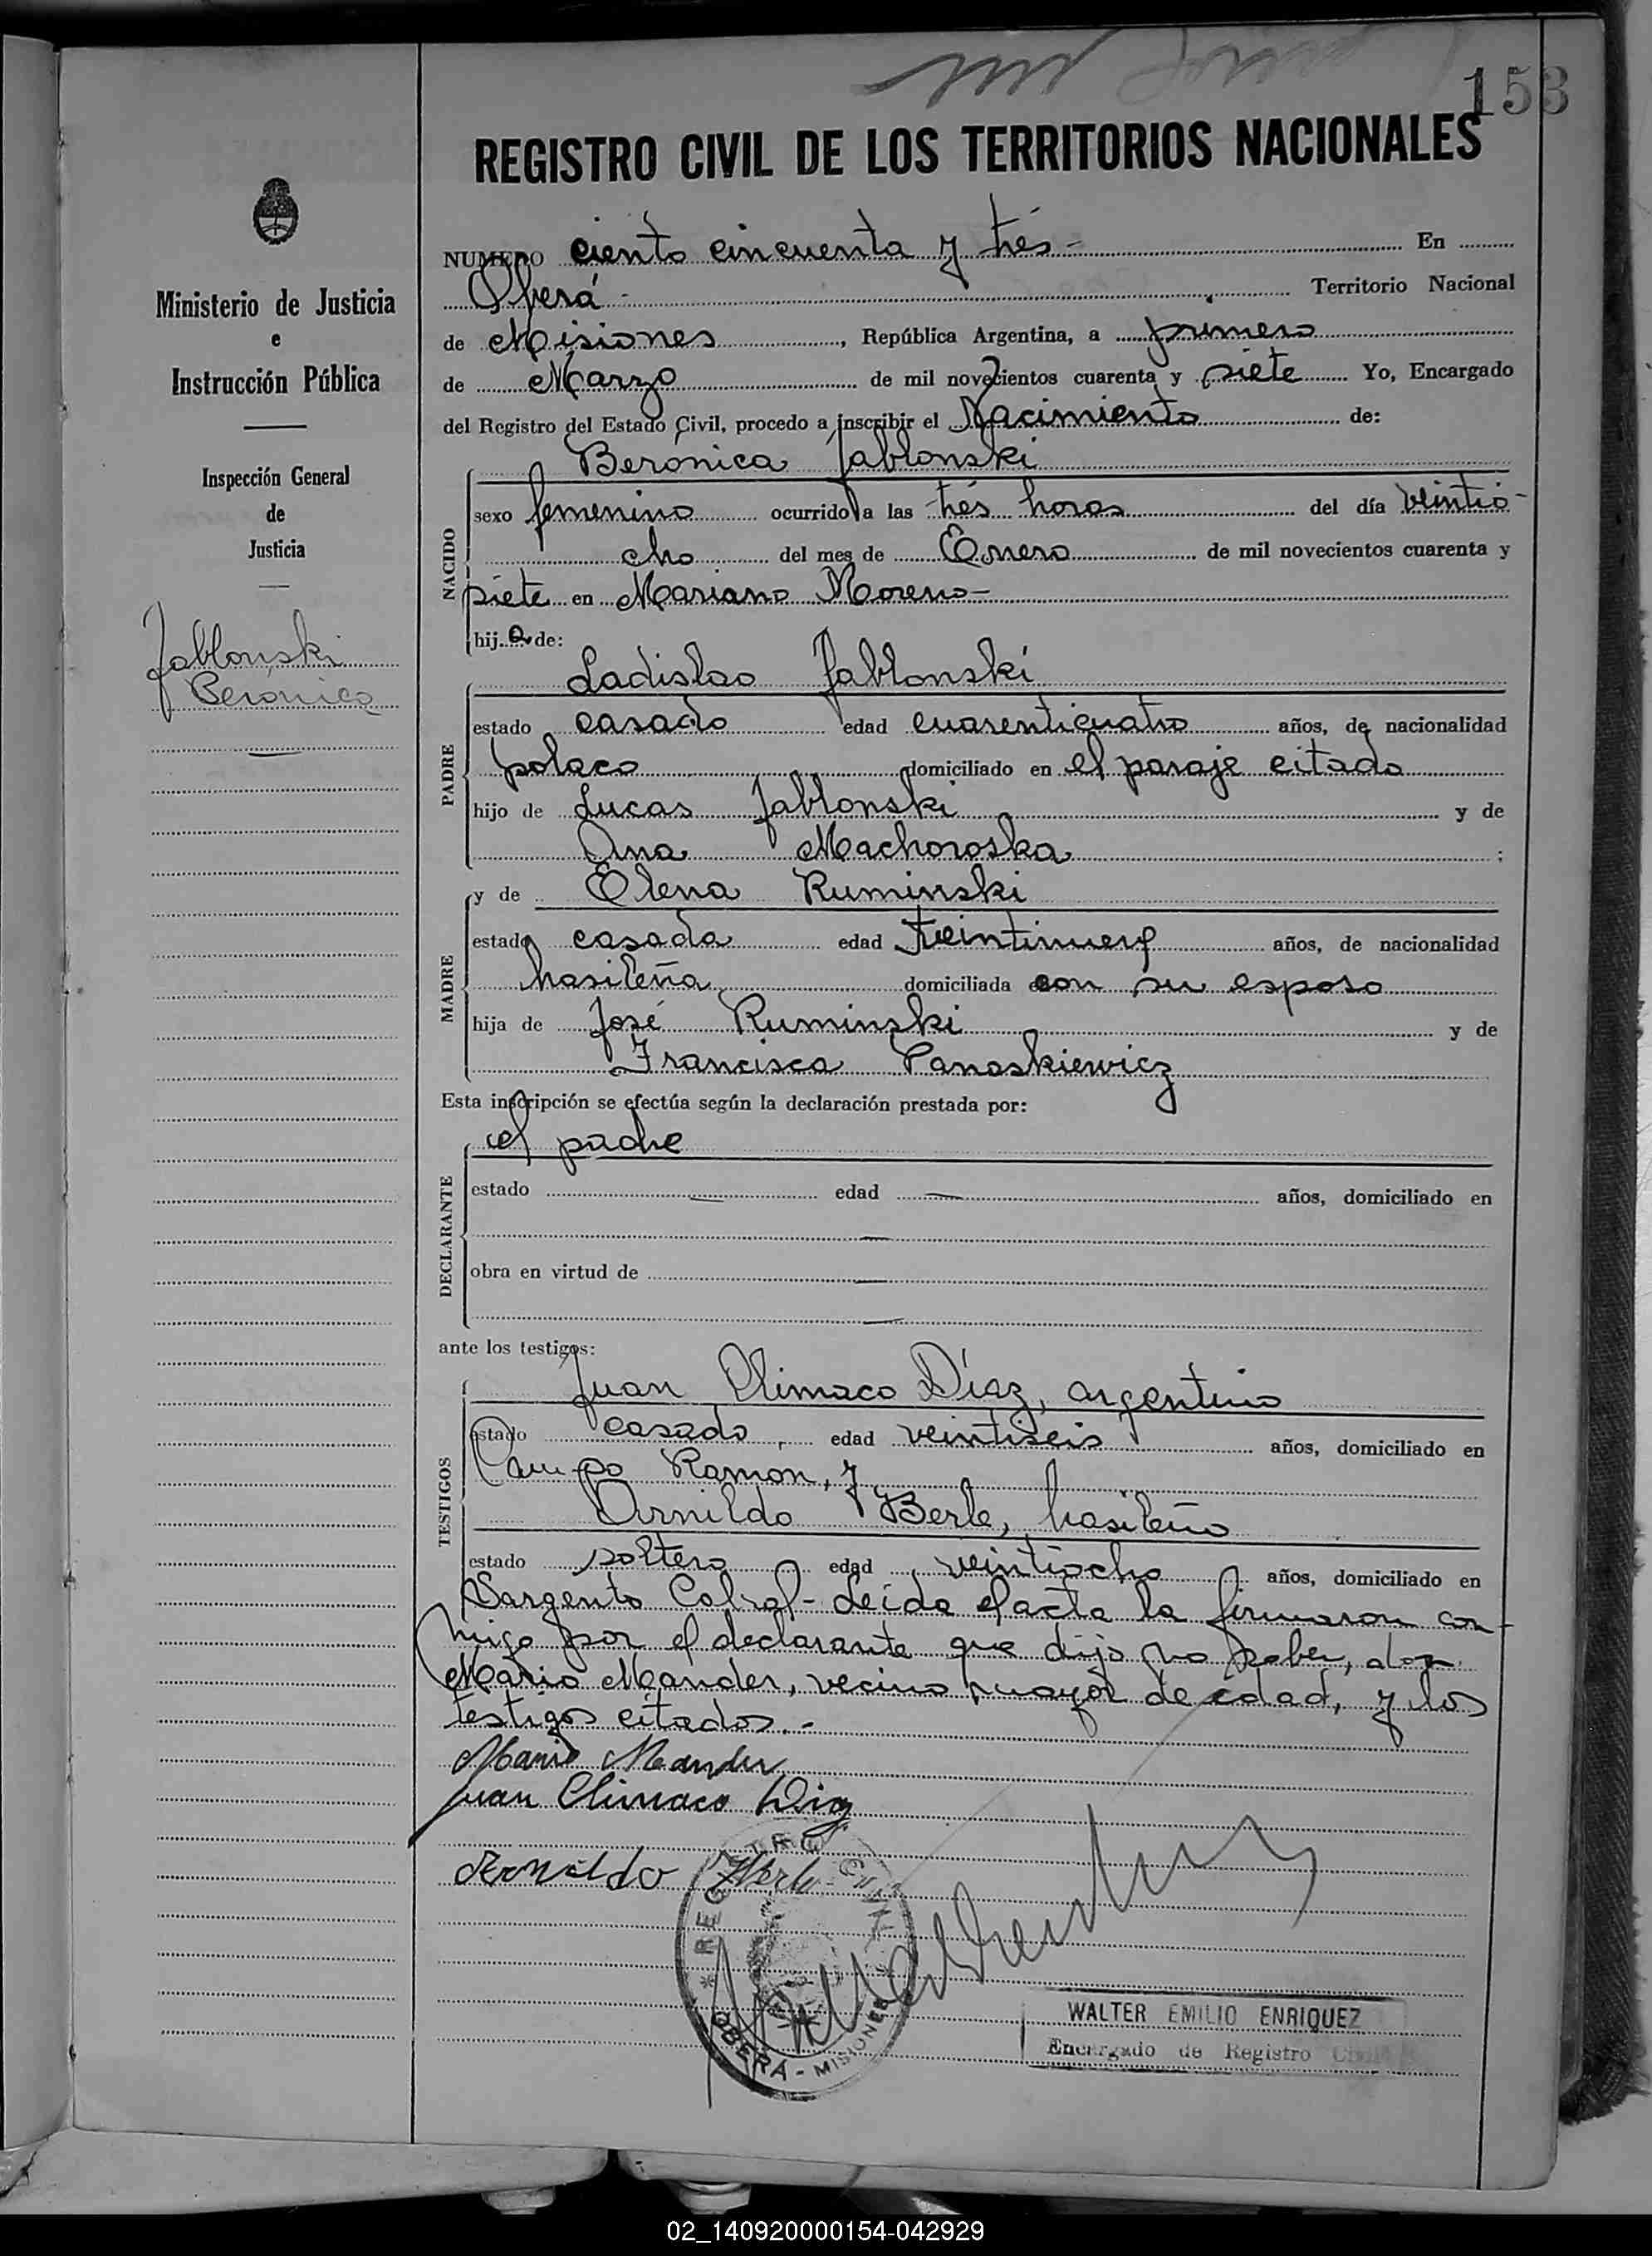 153
REGISTRO CIVIL DE LOS TERRITORIOS NACIONALES
NUMERO ciento cincuenta y trés - En
Oberá - Territorio Nacional
de Misiones, República Argentina, a primero
de Marzo de mil novecientos cuarenta y siete Yo, Encargado
del Registro del Estado Civil, procedo a inscribir el Nacimiento de:
Ministerio de Justicia
e
Instrucción Pública
Inspección General
de
Justicia
Jablonski
Berónica
NACIDO
Berónica Jablonski
sexo femenino ocurrido a las trés horas del día veintio-
cho del mes de Enero de mil novecientos cuarenta y
siete en Mariano Moreno-
hija de:
PADRE
Ladislao Jablonski
estado casado edad cuarenticuatro años, de nacionalidad
polaco domiciliado en el paraje citado
hijo de Lucas Jablonski y de
Ana Machoroska ;
MADRE
y de Elena Ruminski
estado casada edad años, de nacionalidad
brasileña domiciliada con su esposo
hija de José Ruminski y de
Francisca Panaskiewicz
Esta inscripción se efectúa según la declaración prestada por:
DECLARANTE
el padre
estado — edad — años, domiciliado en
—
obra en virtud de —
—
ante los testigos:
TESTIGOS
Juan Climaco Díaz, argentino
estado casado, edad veintiseis años, domiciliado en
Campo Ramon, y
Arnildo Berle, brasileño
estado soltero edad veintiocho años, domiciliado en
Sargento Cabral- Leida el acta la firmaron con-
migo por el declarante que dijo no saber, don
Mario Mander, vecino mayor de edad, y los
testigos citados.-
Mario Mander
Juan Climaco Diaz
Arnildo
REGISTRO CIVIL
OBERÁ - MISIONES
WALTER EMILIO ENRIQUEZ
Encargado de Registro Civil
02_140920000154-042929